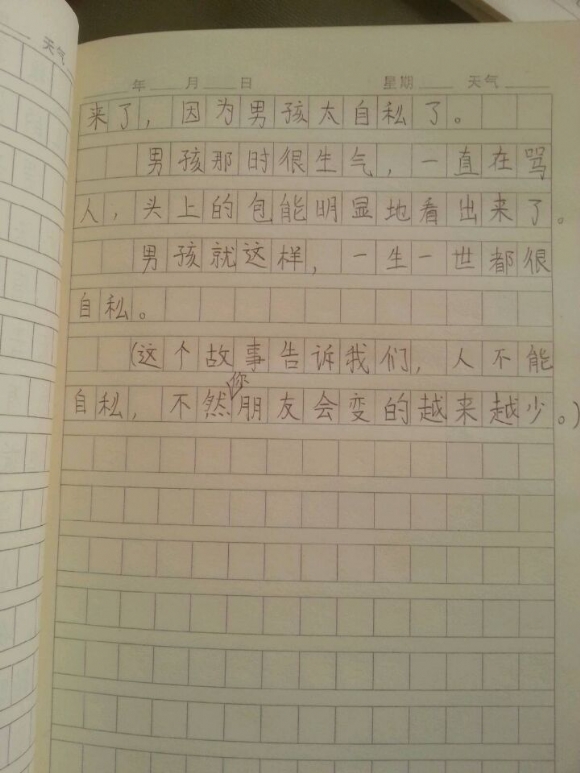 天气
年 月 日 星期 天气
来了，因为男孩太自私了。
男孩那时很生气，一直在骂
人，头上的包能明显地看出来了。
男孩就这样，一生一世都很
自私。
(这个故事告诉我们，人不能
自私，不然你朋友会变的越来越少。)